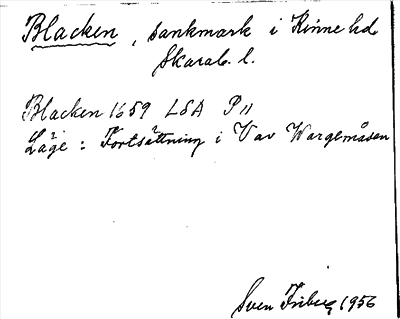 Blacken, sankmark i Kinne hd
Skarab. l.
Blacken 1659 LSA P11
Läge: Fortsättning i V av Wargemåsen
Sven Friberg 1956